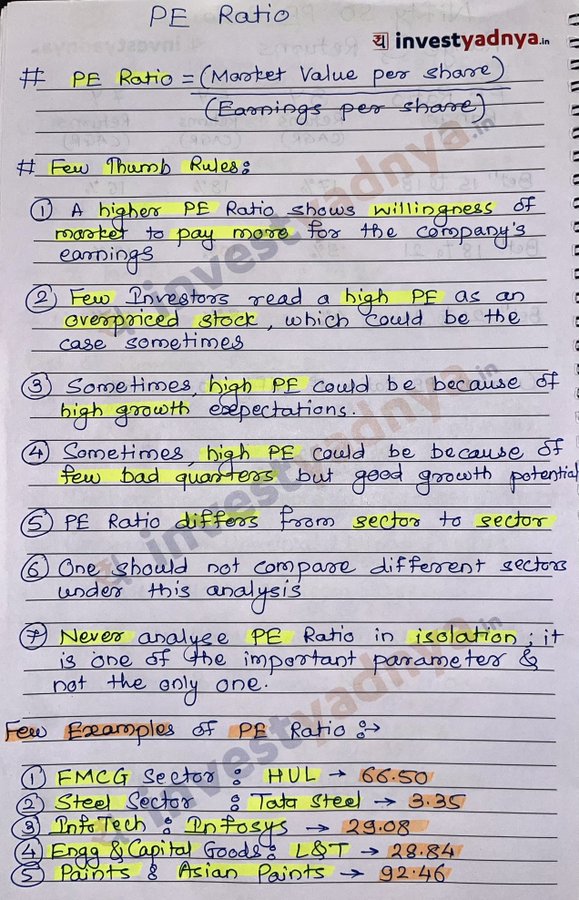 PE Ratio
या investyadnya.in
# PE Ratio = (Market Value per share)
(Earnings per share)
# Few Thumb Rules:
① A higher PE Ratio shows willingness of
market to pay more for the company's
earnings
② Few Investors read a high PE as an
overpriced stock, which could be the
case sometimes
③ Sometimes, high PE could be because of
high growth expectations.
④ Sometimes, high PE could be because of
few bad quarters but good growth potential
⑤ PE Ratio differs from sector to sector
⑥ One should not compare different sectors
under this analysis
⑦ Never analyse PE Ratio in isolation; it
is one of the important parameter &
not the only one.
Few Examples of PE Ratio :→
① FMCG Sector : HUL → 66.50
② Steel Sector : Tata Steel → 3.35
③ InfoTech : Infosys → 29.08
④ Engg & Capital Goods : L&T → 28.84
⑤ Paints : Asian Paints → 92.46